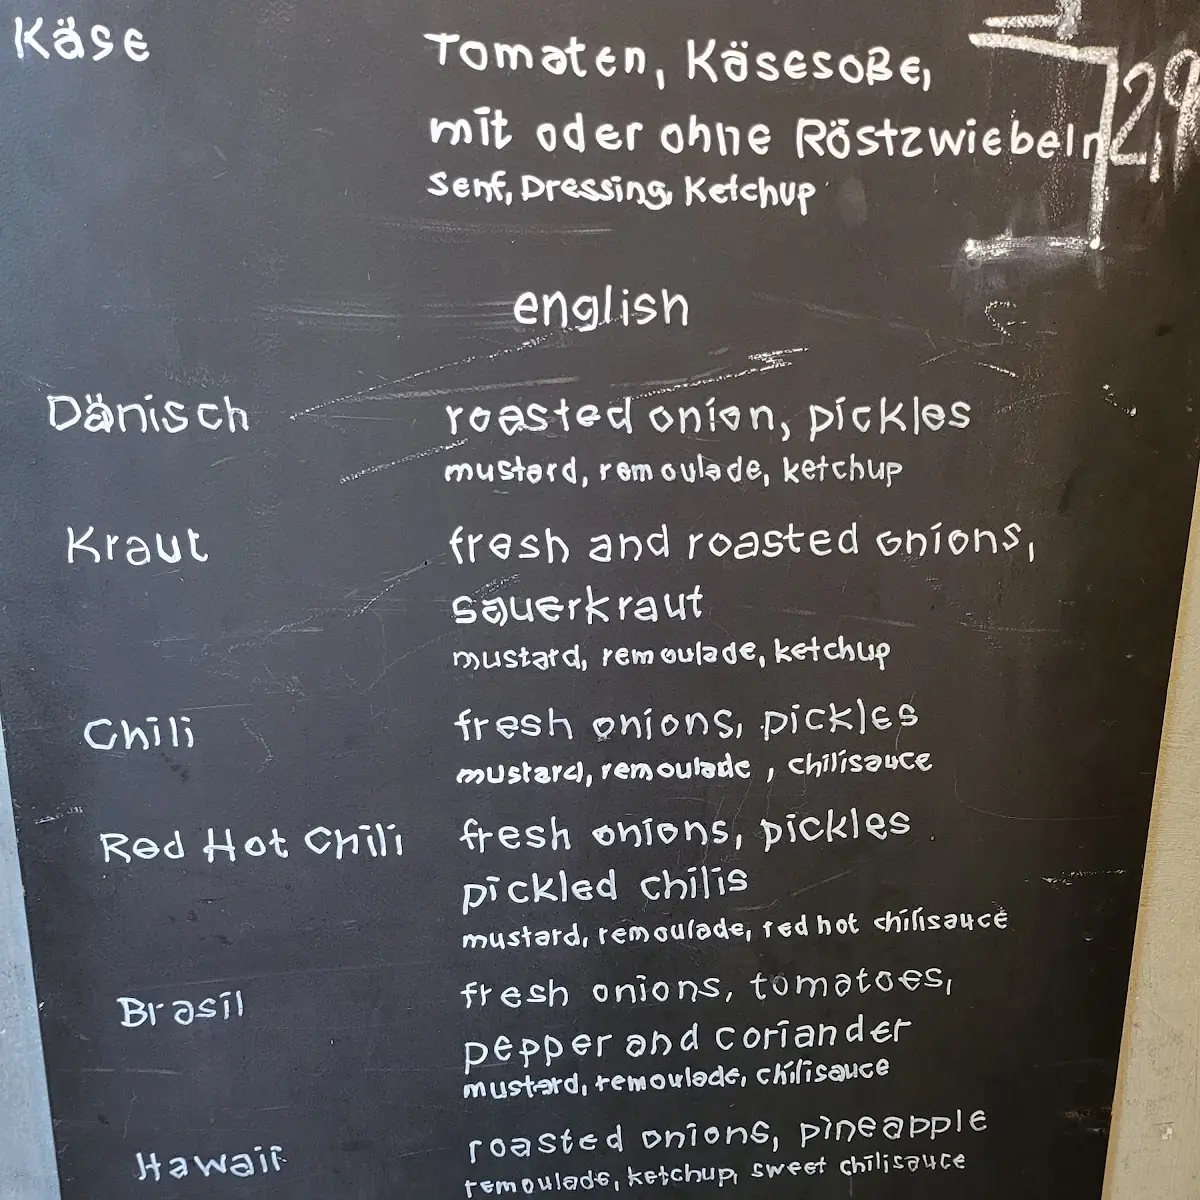 Käse Tomaten, Käsesoße,
mit oder ohne Röstzwiebeln
Senf, Dressing, Ketchup
english
Dänisch roasted onion, pickles
mustard, remoulade, ketchup
Kraut fresh and roasted onions,
sauerkraut
mustard, remoulade, ketchup
Chili fresh onions, pickles
mustard, remoulade , chilisauce
Red Hot Chili fresh onions, pickles
pickled chilis
mustard, remoulade, red hot chilisauce
Brasil fresh onions, tomatoes,
pepper and coriander
mustard, remoulade, chilisauce
Hawaii roasted onions, pineapple
remoulade, ketchup, sweet chilisauce